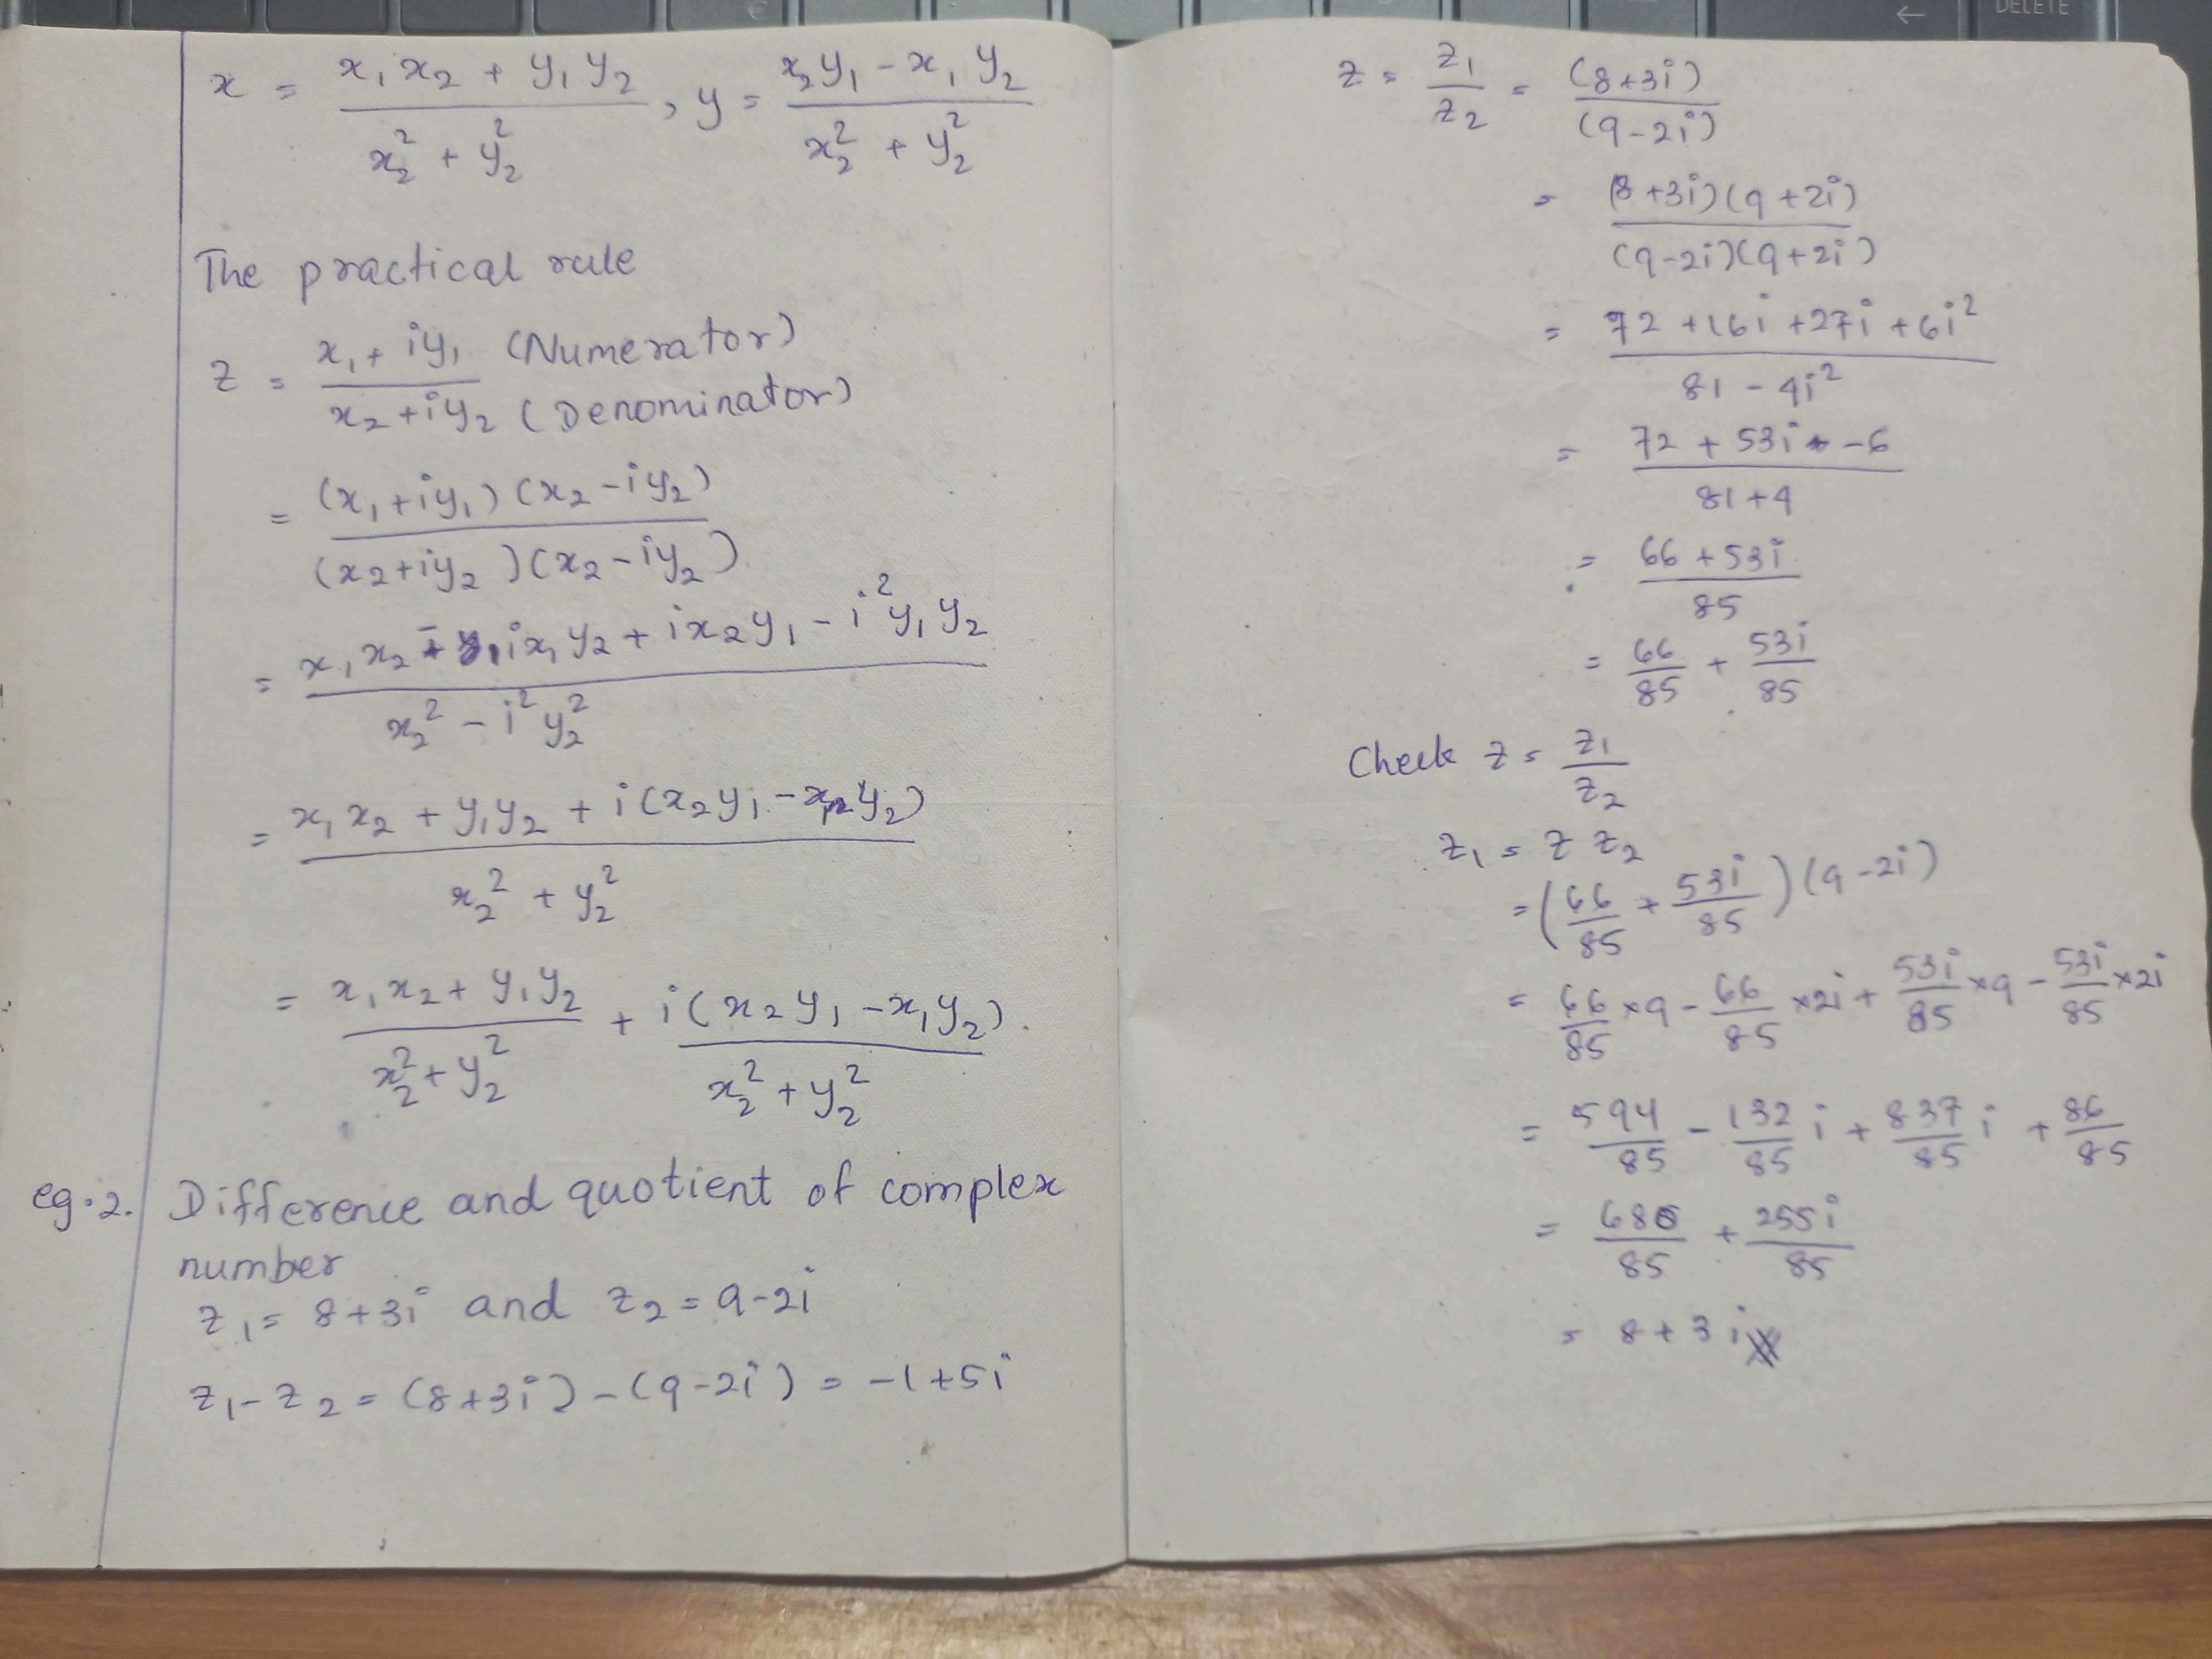 €
←
DELETE
x = (x₁x₂ + y₁y₂)/(x₂² + y₂²), y = (x₂y₁ - x₁y₂)/(x₂² + y₂²)
The practical rule
z = (x₁ + iy₁)/(x₂ + iy₂) (Numerator) (Denominator)
= (x₁+iy₁)(x₂-iy₂)/(x₂+iy₂)(x₂-iy₂)
= (x₁x₂ - ix₁y₂ + ix₂y₁ - i²y₁y₂)/(x₂² - i²y₂²)
= (x₁x₂ + y₁y₂ + i(x₂y₁ - x₁y₂))/(x₂² + y₂²)
= (x₁x₂ + y₁y₂)/(x₂² + y₂²) + i(x₂y₁ - x₁y₂)/(x₂² + y₂²).
eg.2. Difference and quotient of complex
number
z₁ = 8+3i and z₂ = 9-2i
z₁ - z₂ = (8+3i) - (9-2i) = -1+5i
z = z₁/z₂ = (8+3i)/(9-2i)
= (8+3i)(9+2i)/(9-2i)(9+2i)
= (72 +16i +27i +6i²)/(81 - 4i²)
= (72 + 53i - 6)/(81+4)
= (66 + 53i)/85
= 66/85 + 53i/85
Check z = z₁/z₂
z₁ = z z₂
= (66/85 + 53i/85)(9-2i)
= 66/85 ×9 - 66/85 ×2i + 53i/85 ×9 - 53i/85 ×2i
= 594/85 - 132/85 i + 837/85 i + 86/85
= 686/85 + 255i/85
= 8+3i